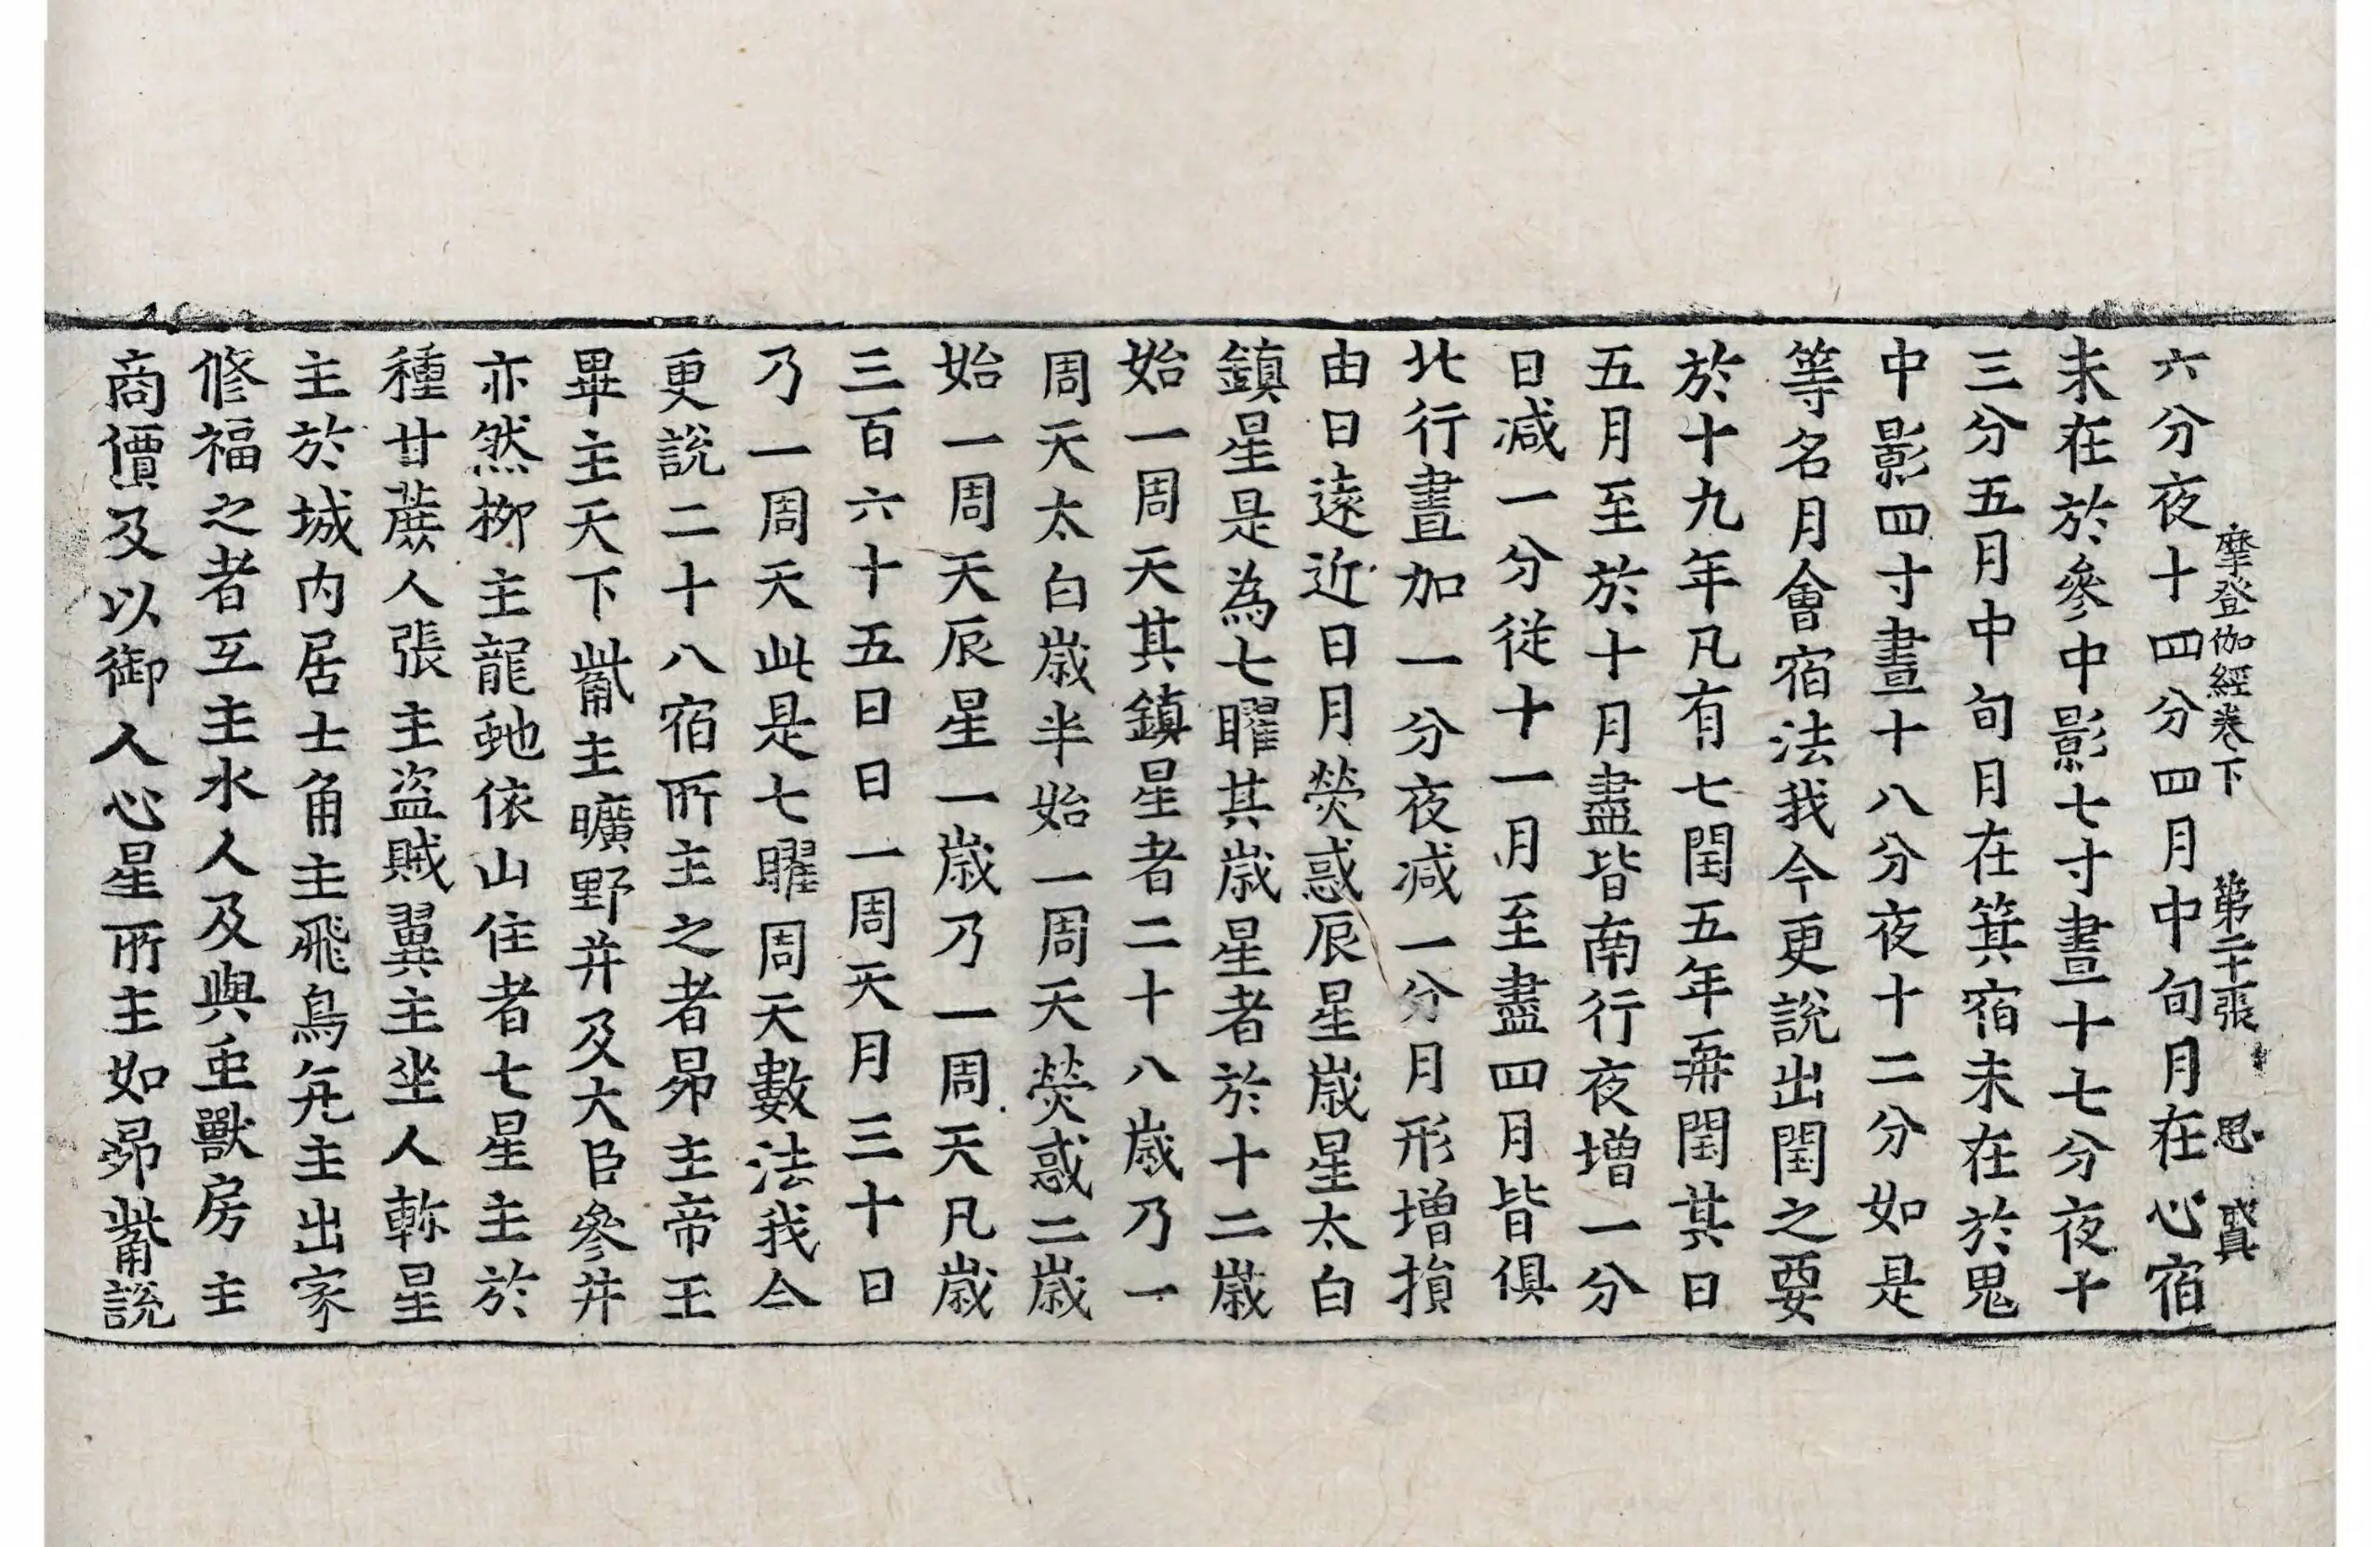 摩登伽經卷下 第二十張 思 真
六分夜十四分四月中旬月在心宿
未在於參中影七寸晝十七分夜十
三分五月中旬月在箕宿未在於鬼
中影四寸晝十八分夜十二分如是
等名月會宿法我今更說出閏之要
於十九年凡有七閏五年再閏其日
五月至於十月盡皆南行夜增一分
日減一分從十一月至盡四月皆俱
北行晝加一分夜減一分月形增損
由日遠近日月熒惑辰星歲星太白
鎮星是為七曜其歲星者於十二歲
始一周天其鎮星者二十八歲乃一
周天太白歲半始一周天熒惑二歲
始一周天辰星一歲乃一周天凡歲
三百六十五日日一周天月三十日
乃一周天此是七曜周天數法我今
更說二十八宿所主之者昴主帝王
畢主天下觜主曠野并及大臣參井
亦然柳主龍虵依山住者七星主於
種甘蔗人張主盜賊翼主坐人軫星
主於城內居士角主飛鳥亢主出家
修福之者互主水人及與虫獸房主
商價及以御人心星所主如昴觜說